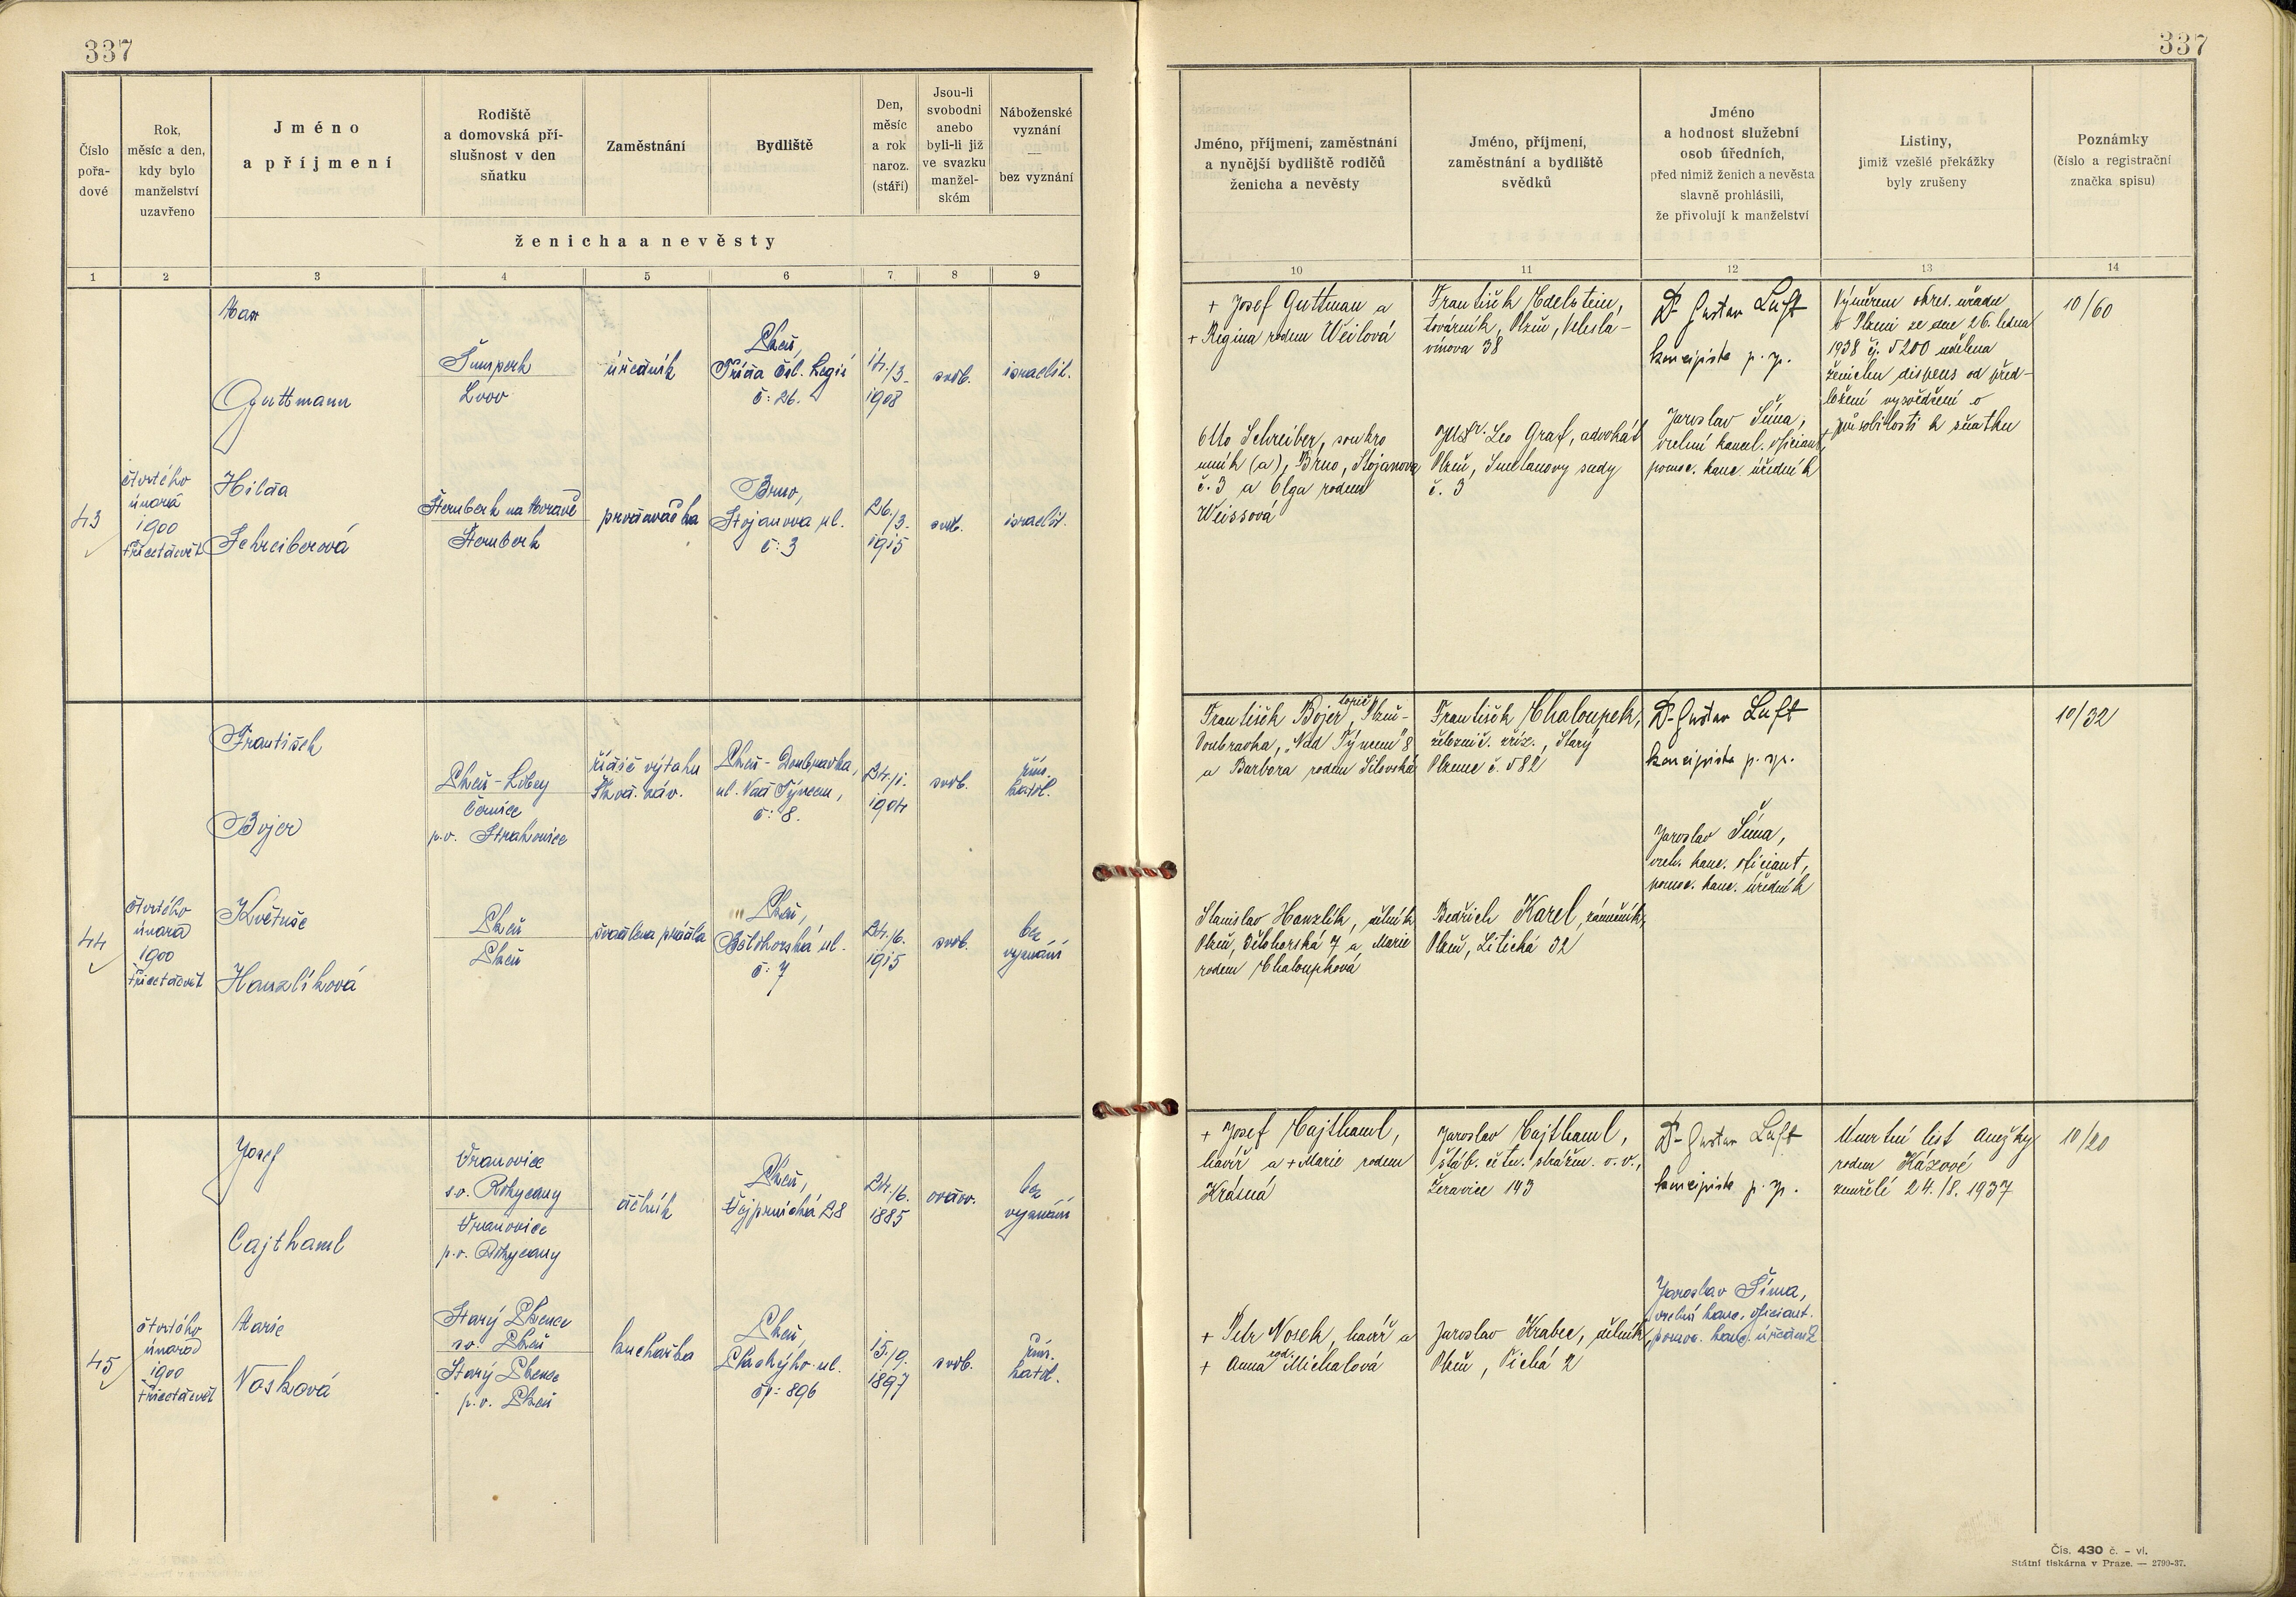 337
337
Číslo
pořa-
dové
Rok,
měsíc a den,
kdy bylo
manželství
uzavřeno
Jméno
a příjmení
Rodiště
a domovská pří-
slušnost v den
sňatku
Zaměstnání
Bydliště
Den,
měsíc
a rok
naroz.
(stáří)
Jsou-li
svobodni
anebo
byli-li již
ve svazku
manžel-
ském
Náboženské
vyznání
—
bez vyznání
ženicha a nevěsty
Jméno, příjmení, zaměstnání
a nynější bydliště rodičů
ženicha a nevěsty
Jméno, příjmení,
zaměstnání a bydliště
svědků
Jméno
a hodnost služební
osob úředních,
před nimiž ženich a nevěsta
slavně prohlásili,
že přivolují k manželství
Listiny,
jimiž vzešlé překážky
byly zrušeny
Poznámky
(číslo a registrační
značka spisu)
1 2 3 4 5 6 7 8 9 10 11 12 13 14
43
čtvrtého
února
1900
třicetdevět
Max
Guttmann
Šumperk
Lvov
úředník
Plzeň,
Třída čsl. Legií
č: 26.
14./3.
1908
svob.
israelit.
Hilda
Schreiberová
Šternberk na Moravě
Šternberk
prodavačka
Brno,
Stojanova ul.
č: 3
26./3.
1915
svob.
israelit.
+ Josef Guttman a
+ Regina rodem Weilová
Otto Schreiber, soukro
mník (a), Brno, Stojanova
č. 3 a Olga rodem
Weissová
František Edelstein,
továrník, Plzeň, Veleslá-
vínova 38
JUDr. Leo Graf, advokát
Plzeň, Smetanovy sady
č. 3
Dr Gustav Luft
koncipista p. sp.
Jaroslav Šíma,
vrchní kancl. oficiant,
pomoc. kanc. úředník
Výměrem okres. úřadu
v Plzni ze dne 26. ledna
1938 čj. 5200 udělena
ženichu dispens od před-
ložení vysvědčení o
způsobilosti k sňatku
10/60
44
čtvrtého
února
1900
třicetdevět
František
Bojer
Plzeň-Lobzy
Černice
p.o. Strakonice
řidič výtahu
Škod. záv.
Plzeň-Doubravka,
ul. Nad Týncem,
č: 8.
24./1.
1904
svob.
řím.
katol.
Květuše
Hanzlíková
Plzeň
Plzeň
švadlena prádla
Plzeň,
Bělohorská ul.
č: 7
24./6.
1915
svob.
bez
vyznání
František Bojer, topič, Plzeň-
Doubravka, „Nad Týncem" 8
a Barbora rodem Silovská
Stanislav Hanzlík, dělník
Plzeň, Bělohorská 7 a Marie
rodem Chaloupková
František Chaloupek,
železnič. zříz., Starý
Plzenec č. 582
Bedřich Karel, zámečník,
Plzeň, Litická 32
Dr Gustav Luft
koncipista p. sp.
Jaroslav Šíma,
vrch. kanc. oficiant,
pomoc. kanc. úředník
10/32
45
čtvrtého
února
1900
třicetdevět
Josef
Cajthaml
Vranovice
s.o. Rokycany
Vranovice
p.o. Rokycany
dělník
Plzeň,
Vejprnická 28
24./6.
1885
ovdov.
bez
vyznání
Marie
Nosková
Starý Plzenec
s.o. Plzeň
Starý Plzenec
p.o. Plzeň
kuchařka
Plzeň,
Plachýho ul.
čp: 896
15./9.
1897
svob.
řím.
katol.
+ Josef Cajthaml,
havíř a + Marie rodem
Krásná
+ Petr Nosek, havíř a
+ Anna rod. Michalová
Jaroslav Cajthaml,
štáb. četn. strážm. v. v.,
Žeravice 143
Jaroslav Krabec, dělník,
Plzeň, Tichá 2
Dr Gustav Luft
koncipista p. sp.
Jaroslav Šíma,
vrchní kanc. oficiant.
pomoc. kanc. úředník
Úmrtní list Anežky
rodem Kázové
zemřelé 24./8. 1937
10/20
Čís. 430 č. - vl.
Státní tiskárna v Praze. — 2790-37.